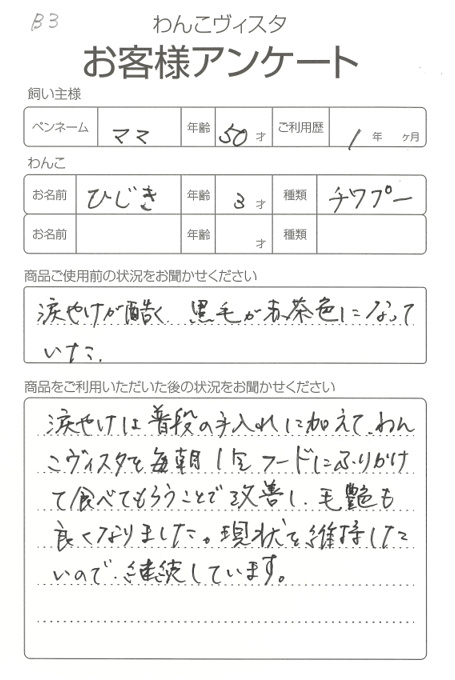 B3
わんこヴィスタ
お客様アンケート
飼い主様
ペンネーム ママ 年齢 50 才 ご利用歴 1 年 ヶ月
わんこ
お名前 ひじき 年齢 3 才 種類 チワプー
お名前 年齢 才 種類
商品ご使用前の状況をお聞かせください
涙やけが酷く、黒毛が赤茶色になって
いた。
商品をご利用いただいた後の状況をお聞かせください
涙やけは普段の手入れに加えて、わん
こヴィスタを毎朝1包フードにふりかけ
て食べてもらうことで改善し、毛艶も
良くなりました。現状を維持した
いので、継続しています。